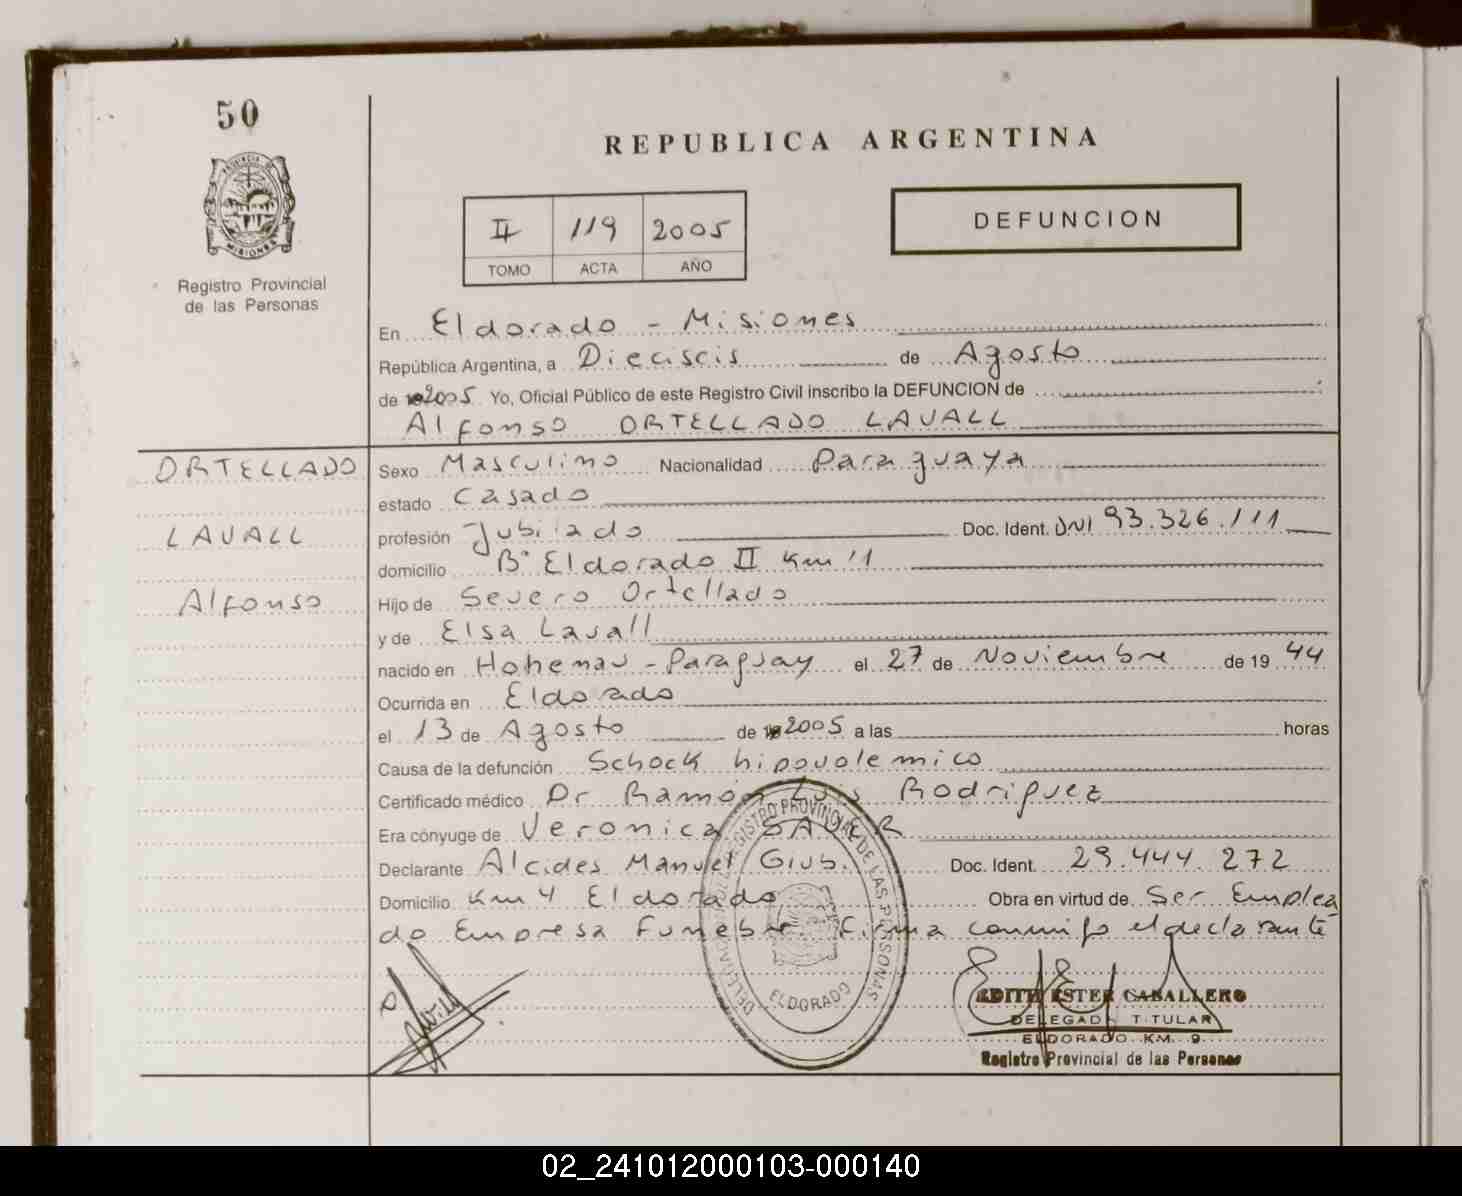 50
REPUBLICA ARGENTINA
II 119 2005
TOMO ACTA AÑO
DEFUNCION
PROVINCIA DE MISIONES
Registro Provincial
de las Personas
En Eldorado - Misiones
República Argentina, a Dieciseis de Agosto
de 2005 Yo, Oficial Público de este Registro Civil inscribo la DEFUNCION de
Alfonso ORTELLADO LAVALL
ORTELLADO
LAVALL
Alfonso
Sexo Masculino Nacionalidad Paraguaya
estado Casado
profesión Jubilado Doc. Ident. DNI 93.326.111
domicilio B° Eldorado II Km 11
Hijo de Severo Ortellado
y de Elsa Lavall
nacido en Hohenau - Paraguay el 27 de Noviembre de 19 44
Ocurrida en Eldorado
el 13 de Agosto de 2005 a las horas
Causa de la defunción Schock hipovolemico
Certificado médico Dr Ramón Luis Rodriguez
Era cónyuge de Veronica SAUER
Declarante Alcides Manuel Giub. Doc. Ident. 29.444.272
Domicilio Km 4 Eldorado Obra en virtud de Ser Emplea
do Empresa Funebre. Firma conmigo el declarante
REGISTRO PROVINCIAL DE LAS PERSONAS
ELDORADO
EDITH ESTER CABALLERO
DELEGADA TITULAR
ELDORADO KM. 9
Registro Provincial de las Personas
02_241012000103-000140